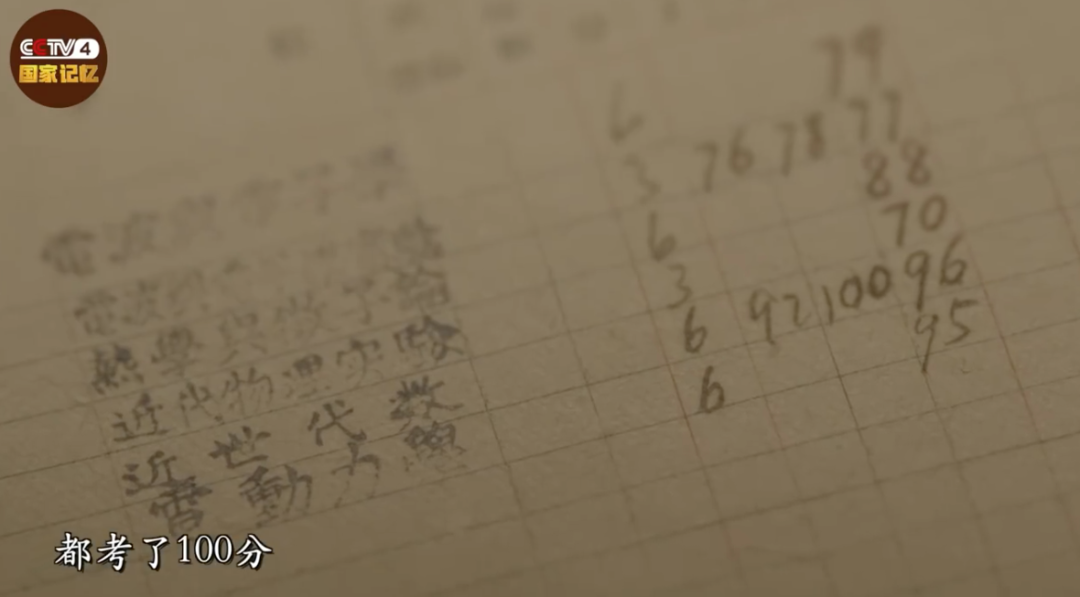 CCTV 4
国家记忆
79
6
3 76 78 77
6 88
3 70
熱學與微子論
6 92 100 96
近代物理实驗
6 95
近世代数
電動力學
都考了100分